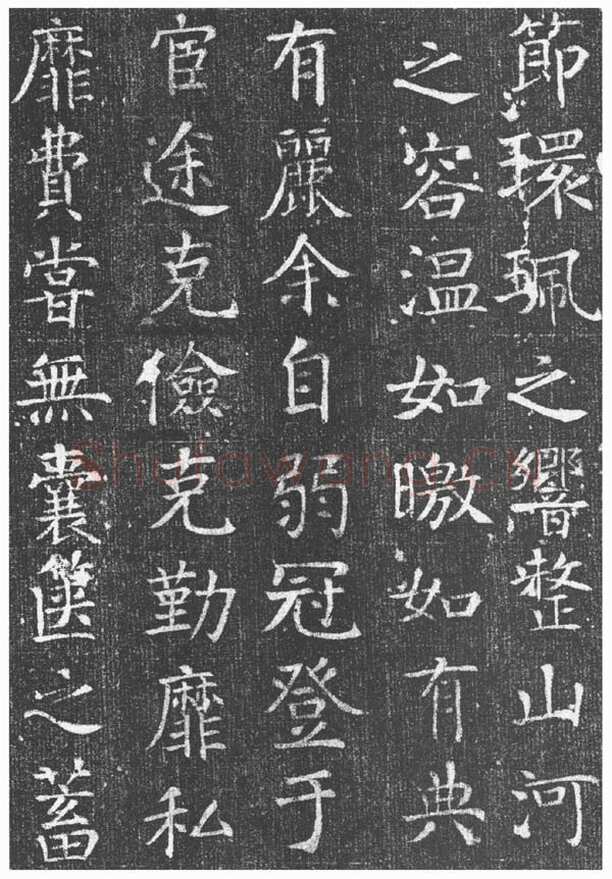 節環珮之響整山河
之容温如曒如有典
有麗余自弱冠登于
宦途克儉克勤靡私
靡費嘗無囊篋之蓄
Shufawang.cn